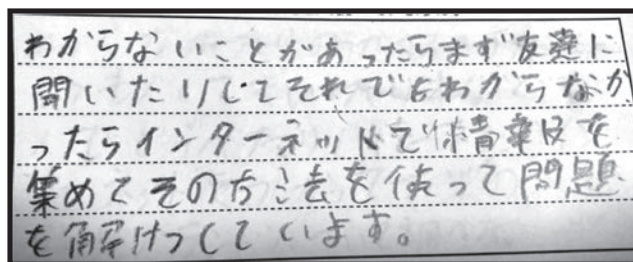 わからないことがあったらまず友達に
聞いたりしてそれでもわからなか
ったらインターネットで情報を
集めてその方法を使って問題
を解けつしています。